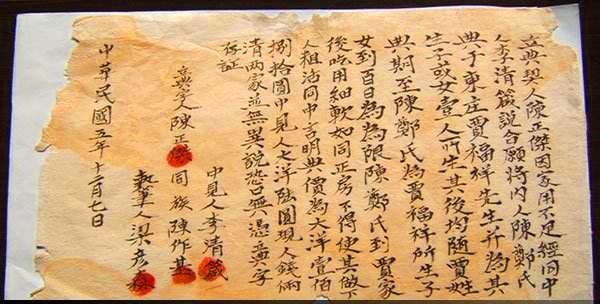 立典契人陈正傑因家用不足經同中
人李清箴説合願將内人陈鄭氏
典于東庄賈福祥先生并為其
生子或女壹人所生其後均随賈姓
典期至陳鄭氏為賈福祥所生子
女到百日為限陳鄭氏到賈家
後吃用細軟如同正房不得使其做下
人粗活同中言明典價為大洋壹佰
捌拾圓中見人之洋陆圓現人錢兩
清两家並無異説恐口無憑立典字
存証
立字人陳正傑
同族陳作基
中見人李清箴
執筆人梁彦
中華民國五年十二月七日